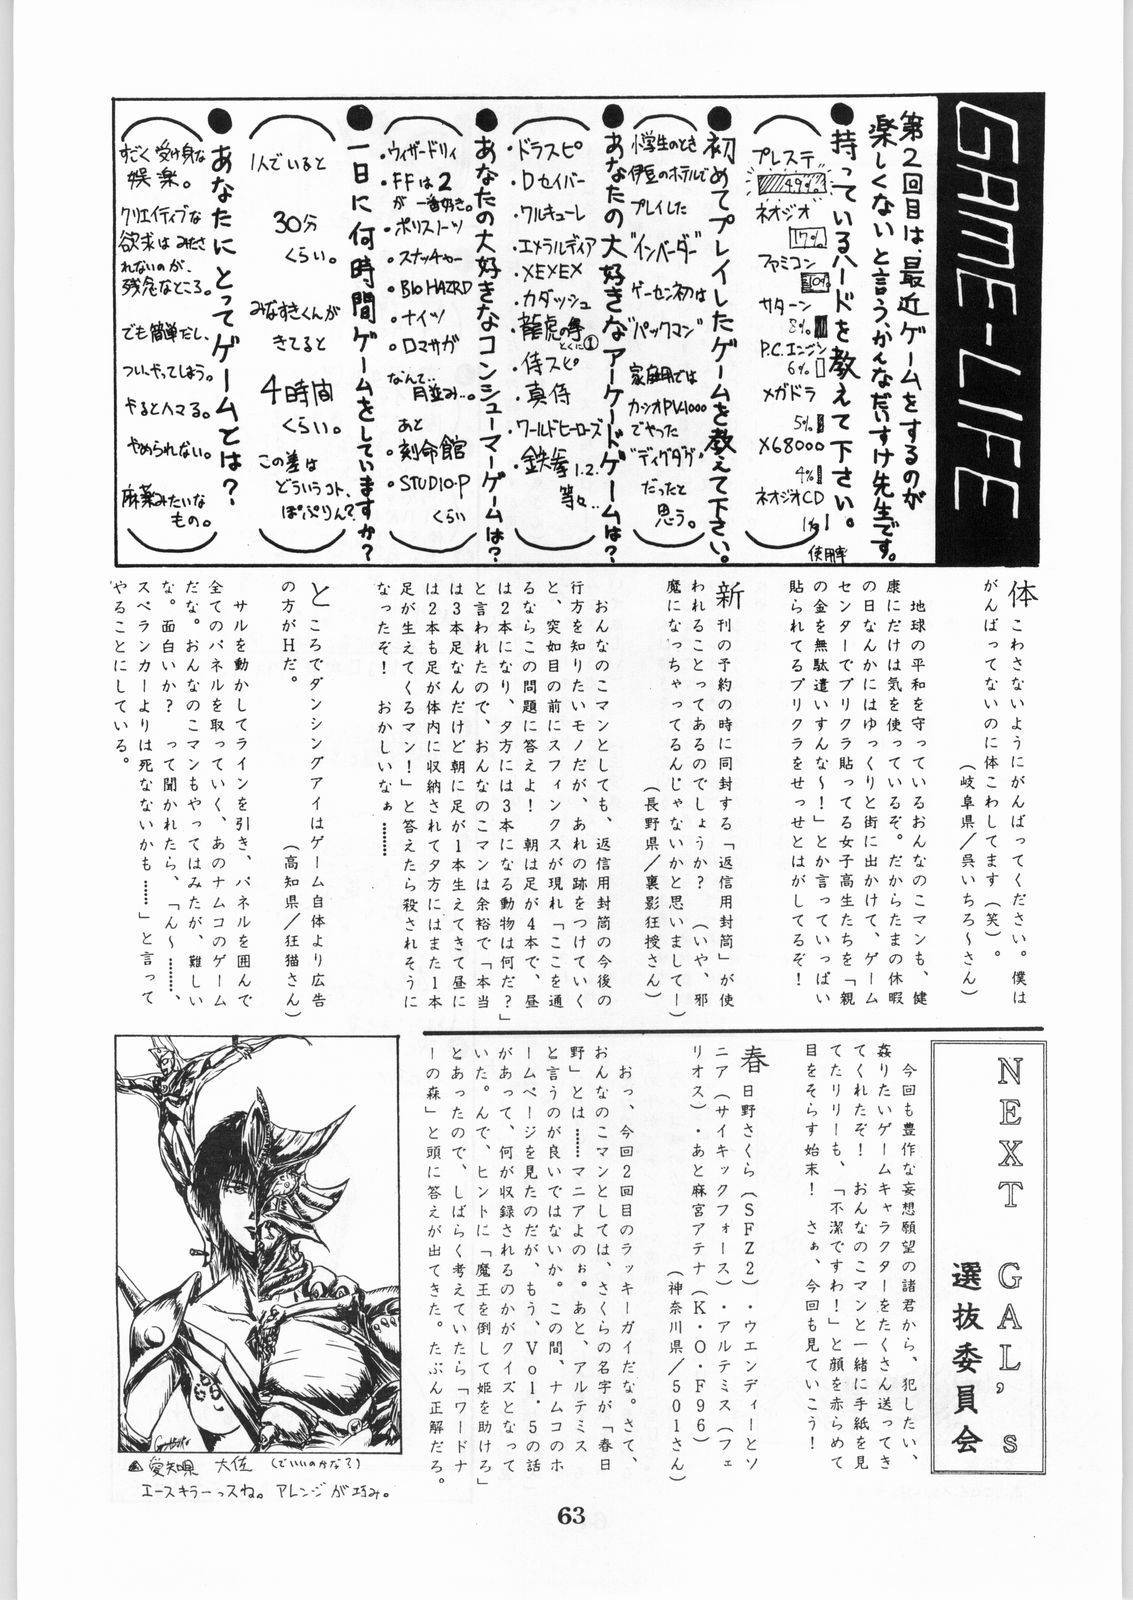 GAME-LIFE
第2回目は、最近ゲームをするのが
楽しくないと言う、かんなだいすけ先生です。
●持っているハードを教えて下さい。
プレステ
49%
ネオジオ
17%
ファミコン
10%
サターン
8%
P.C.エンジン
6%
メガドラ
5%
X68000
4%
ネオジオCD
1%
使用率
●初めてプレイしたゲームを教えて下さい。
小学生のとき
伊豆のホテルで
プレイした
"インベーダー"
ゲーセン初は
"パックマン"
家庭用では
カシオPV-1000
でやった
"ディグダグ"
だったと
思う。
●あなたの大好きなアーケードゲームは?
・ドラスピ
・Dセイバー
・ワルキューレ
・エメラルディア
・XEXEX
・カダッシュ
・龍虎の拳
とくに①
・侍スピ
・真侍
・ワールドヒーローズ
・鉄拳1.2.
等々..
●あなたの大好きなコンシューマーゲームは?
・ウィザードリィ
・FFは2
が一番好き。
・ポリスノーツ
・スナッチャー
・BIO HAZRD
・ナイツ
・ロマサガ
なんて..
月並み..。
あと
・刻命館
・STUDIO-P
くらい
●一日に何時間ゲームをしていますか?
1人でいると
30分
くらい。
みなすきくんが
きてると
4時間
くらい。
この差は
どういうコト、
ぽぷりん?
●あなたにとってゲームとは?
すごく受け身な
娯楽。
クリエイティブな
欲求はみたさ
れないのが、
残念なところ。
でも簡単だし、
ついやってしまう。
やるとハマる。
やめられない。
麻薬みたいな
もの。
体こわさないようにがんばってください。僕は
がんばってないのに体こわしてます(笑)。
(岐阜県/呉いちろ〜さん)
地球の平和を守っているおんなのこマンも、健
康にだけは気を使っているぞ。だからたまの休暇
の日なんかにはゆっくりと街に出かけて、ゲーム
センターでプリクラ貼ってる女子高生たちを「親
の金を無駄遣いすんな〜!」とか言っていっぱい
貼られてるプリクラをせっせとはがしてるぞ!
新刊の予約の時に同封する「返信用封筒」が使
われることってあるのでしょうか?(いや、邪
魔になっちゃってるんじゃないかと思いましてー)
(長野県/裏影狂授さん)
おんなのこマンとしても、返信用封筒の今後の
行方を知りたいモノだが、あれの跡をつけていく
と、突如目の前にスフィンクスが現れ「ここを通
るならこの問題に答えよ! 朝は足が4本で、昼
は2本になり、夕方には3本になる動物は何だ?」
と言われたので、おんなのこマンは余裕で「本当
は3本足なんだけど朝に足が1本生えてきて昼に
は2本も足が体内に収納されて夕方にはまた1本
足が生えてくるマン!」と答えたら殺されそうに
なったぞ! おかしいなぁ………
ところでダンシングアイはゲーム自体より広告
の方がHだ。
(高知県/狂猫さん)
サルを動かしてラインを引き、パネルを囲んで
全てのパネルを取っていく、あのナムコのゲーム
だな。おんなのこマンもやってはみたが、難しい
な。面白いか? って聞かれたら、「ん〜……、
スペランカーよりは死なないかも……」と言って
やることにしている。
NEXT GAL's
選抜委員会
今回も豊作な妄想願望の諸君から、犯したい、
姦りたいゲームキャラクターをたくさん送ってき
てくれたぞ! おんなのこマンと一緒に手紙を見
てたリリーも、「不潔ですわ!」と顔を赤らめて
目をそらす始末! さぁ、今回も見ていこう!
春日野さくら(SFZ2)・ウエンディーとソ
ニア(サイキックフォース)・アルテミス(フェ
リオス)・あと麻宮アテナ(K・O・F96)
(神奈川県/501さん)
おっ、今回2回目のラッキーガイだな。さて、
おんなのこマンとしては、さくらの名字が「春日
野」とは……マニアよのぉ。あと、アルテミス
と言うのが良いではないか。この間、ナムコのホ
ームページを見たのだが、もう、Vol.5の話
があって、何が収録されるのかがクイズとなって
いた。んで、ヒントに「魔王を倒して姫を助けろ」
とあったので、しばらく考えていたら「ワードナ
ーの森」と頭に答えが出てきた。たぶん正解だろ。
▲愛知県 大佐(でいいのかな?)
エースキラーっスね。アレンジが巧み。
63